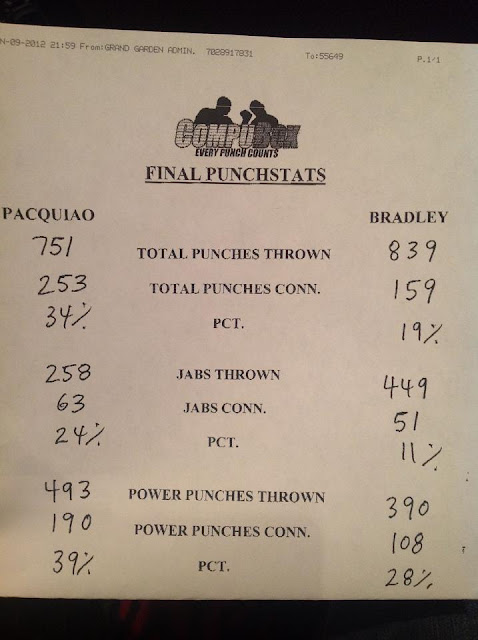 N-09-2012 21:59 From:GRAND GARDEN ADMIN. 7028917831 To:55649 P.1/1
COMPUBOX
EVERY PUNCH COUNTS
FINAL PUNCHSTATS
PACQUIAO BRADLEY
751 TOTAL PUNCHES THROWN 839
253 TOTAL PUNCHES CONN. 159
34% PCT. 19%
258 JABS THROWN 449
63 JABS CONN. 51
24% PCT. 11%
493 POWER PUNCHES THROWN 390
190 POWER PUNCHES CONN. 108
39% PCT. 28%